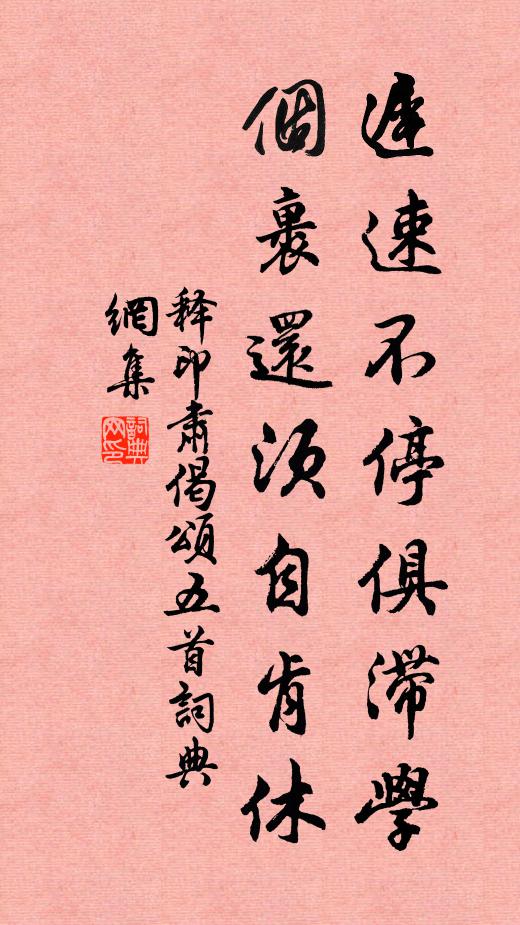 遲速不停俱滯學
個裏還須自肯休
释印肅偈頌五首詞典
網集
詞典网印